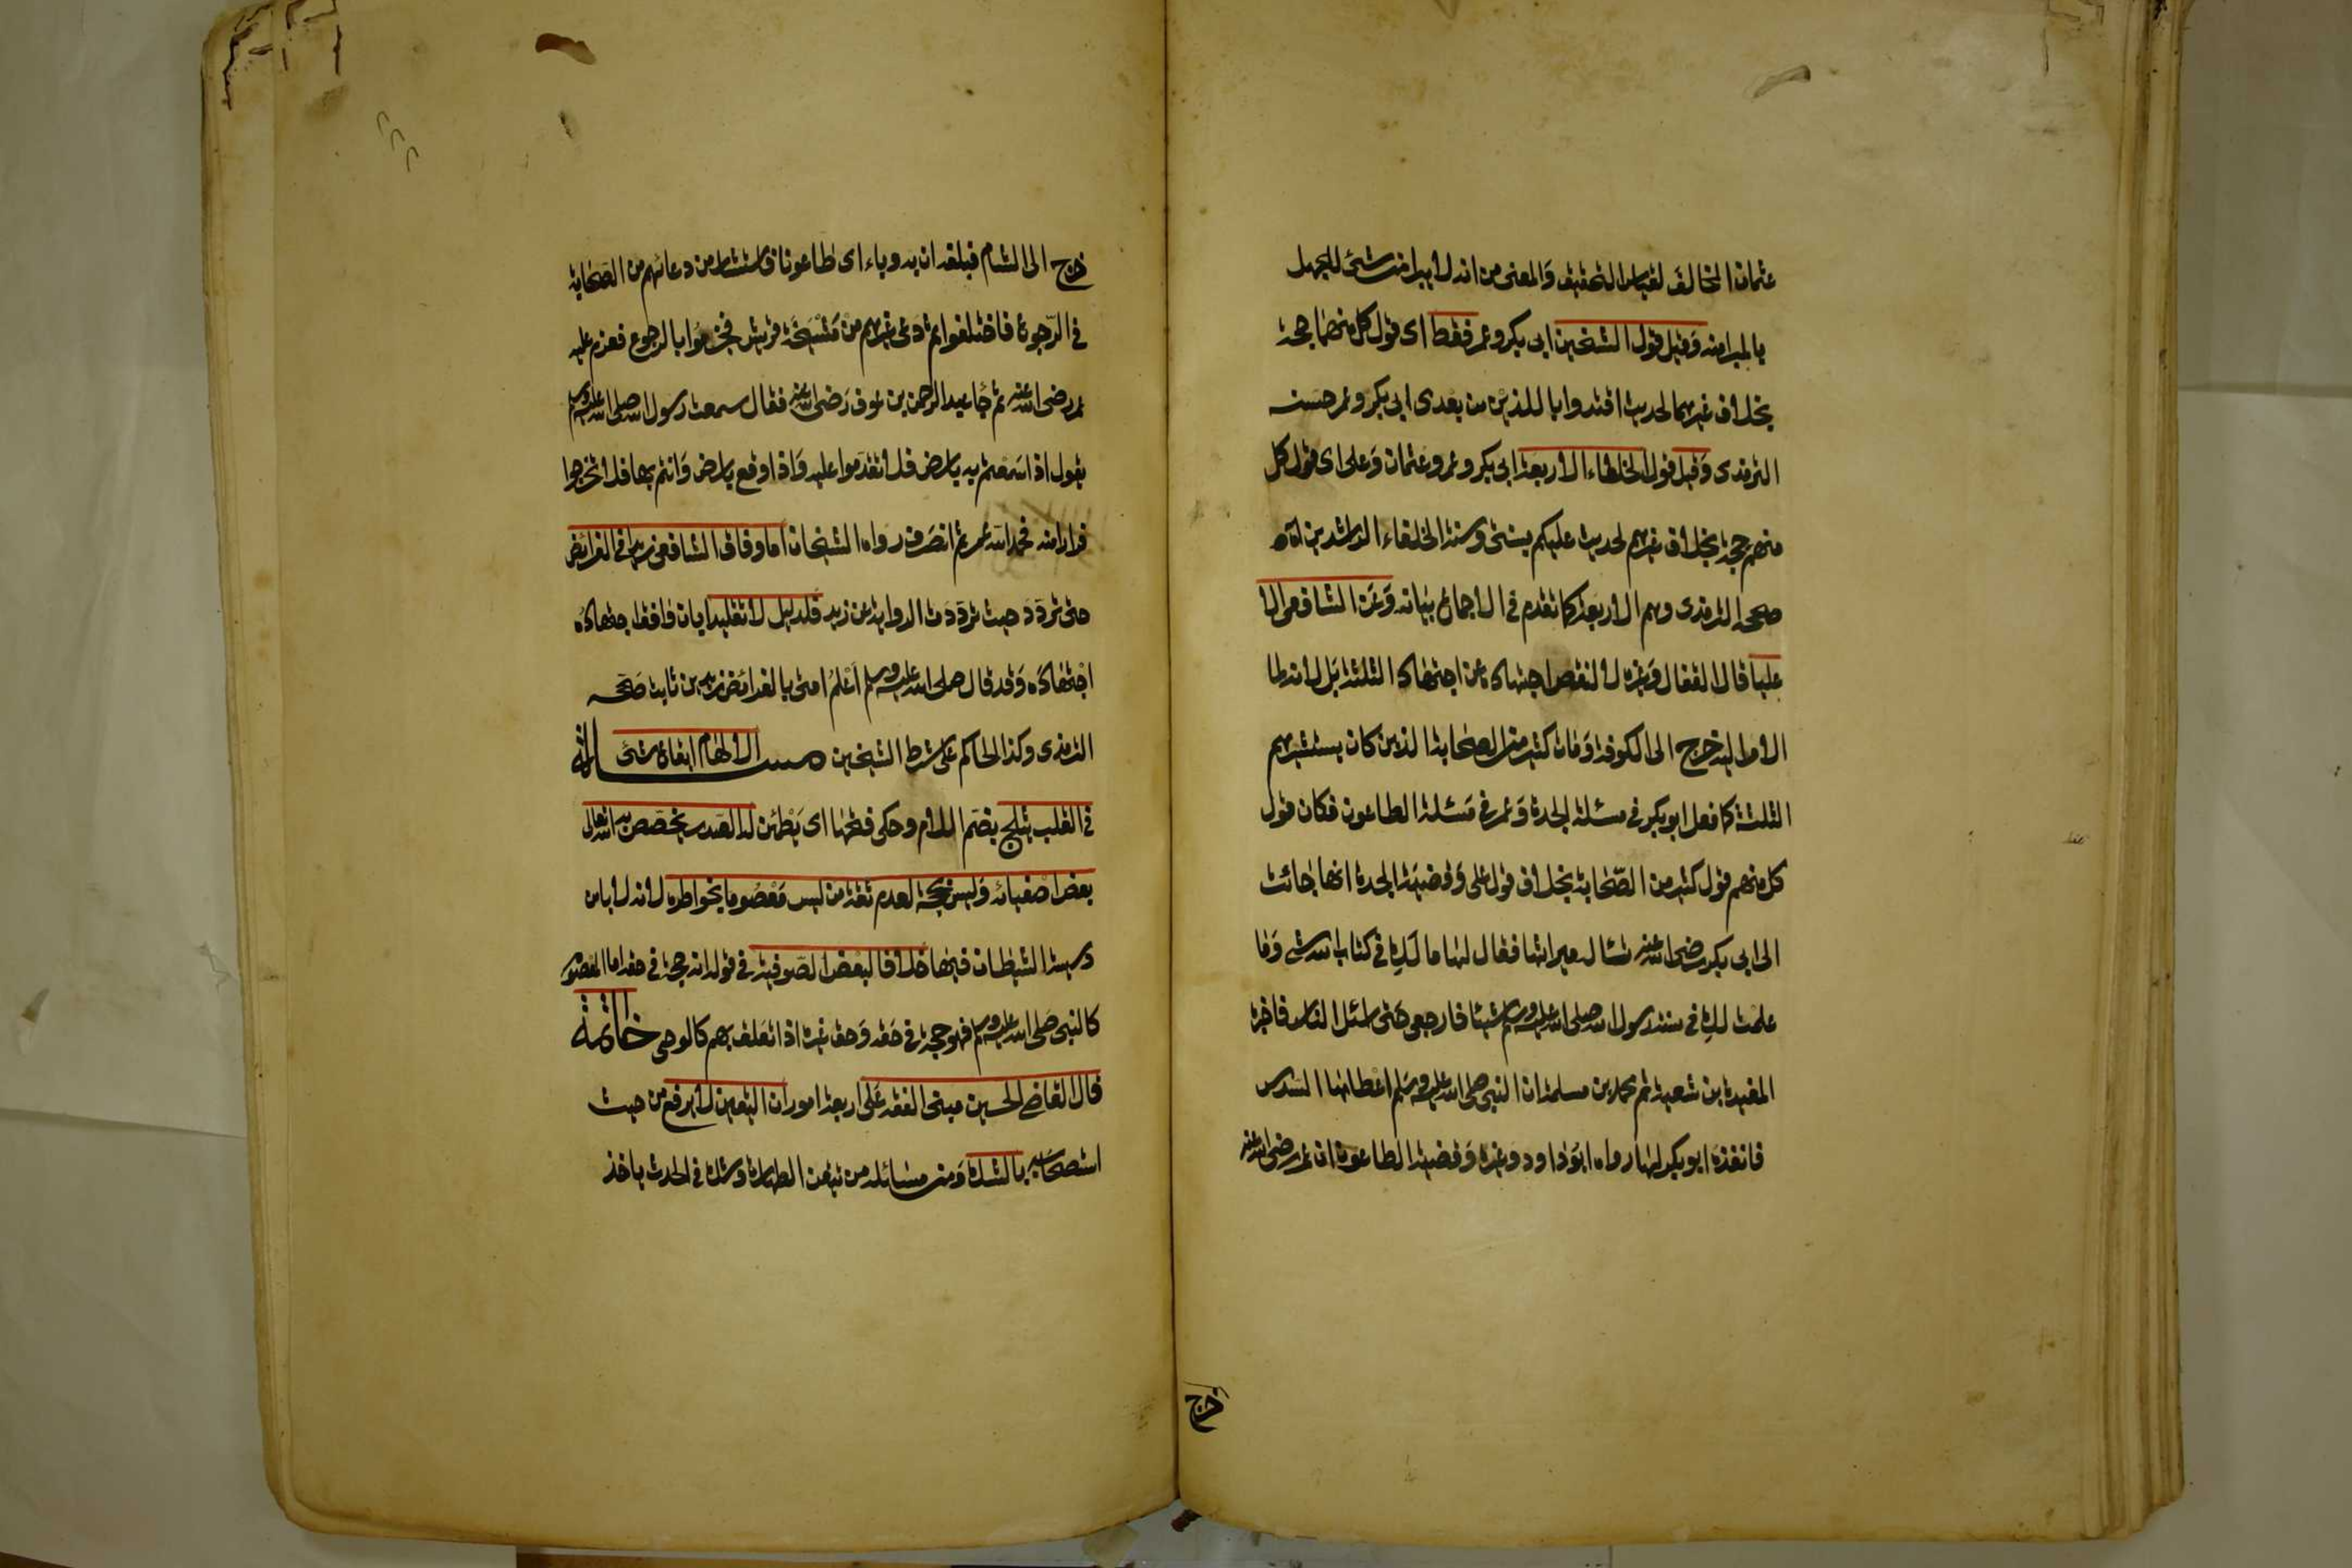 عثمان المخالف لقياس التحقيق وَالمعنى من انه لا يبرا من شئ للجهل
بالمبرا منه وَقيل قول الشيخين ابى بكر وعمر فقط اى قول كل منهما حجة
بخلاف غيرهما لحديث اقتدوا باللذين من بعدى ابى بكر وعمر حسنه
الترمذى وَقيل قول الخلفاء الاربعة ابى بكر وعمر وعثمان وَعلى اى قول كل
منهم حجة بخلاف غيرهم لحديث عليكم بسنتى وسنة الخلفاء الراشدين
صححه الترمذى وهم الاربعة كما تقدم فى الاجماع بيانه وَعَن الشافعى الا
عليا قال القفال وَغيره لا لنقص اجتهاده عن اجتهاد الثلثة بَل لانه لما
ال الامر اليه خرج الى الكوفة وَمات كثير من الصحابة الذين كان يستشيرهم
الثلثة كما فعل ابو بكر فى مسئلة الجدة وَعمر فى مَسئلة الطاعون فكان قول
كل منهم قول كثير من الصّحابة بخلاف قول على وَقضيّة الجدة انها جائت
الى ابى بكر رضى الله عنه تسال ميراثها فقال لها ما لَكِ فى كتاب الله شئ وَما
علمت لكِ فى سنة رسول الله صلى الله عليه وسلم شيئا فارجعى حَتى اسئل الناس فاخبره
المغيرة بن شعبة ثم محمد بن مسلمة ان النبى صلى الله عليه وسَلم اعْطاها السّدس
فانفذه ابو بكر لها رواه ابوُ داود وغيره وَقضية الطاعون ان عمر رضى الله عنه
خرج
خرج الى الشام فبلغه ان به وباء اى طاعونا فاستشار من دعائهم من الصّحابة
فى الرّجوع فاختلفوا ثم دَعى غيرهم من مَشْيَخَة قريش فجزموُا بالرجوع فعزم عليه
عمر رضى الله عنه ثم جَا عبد الرحمن بن عوف رَضى الله عنه فقال سمعت رسول الله صلى الله عليه وسلم
يقول اذا سَمعتم به بارض فلا تقدَموا عليه وَاذا وقع بارض وَانتم بها فلا تخرجوا
فرارا منه فحمد الله عمر ثم انصَرف رواه الشيخان اما وفاق الشافعى زيدا فى الفرائض
حتى تردّدَ حيث تردّدَت الرواية عن زيد فلدليل لا تقليدا بان وافق اجتهاده
اجْتهادَه وَقد قال صلى الله عليه وسلم اَعْلمُ امتى بالفرائض زيد بن ثابت صَححه
الترمذى وكذا الحاكم على شرط الشيخين مسألة الالهام ايقاع شئ
فى القلب يثلج بضَم اللام وحكى فتحها اى يَطْمئن له الصّدر يخصّص به الله تعالى
بعض اصفيائه وَليس بحجة لعدم ثقة من ليس مَعْصُوما بخواطره لانه لا يامن
دسيسة الشيطان فيها خلافا لبعْض الصّوفية فى قوله انه حجة فى حقه اما المعصوم
كالنبى صَلى الله عليه وسلم فهو حجة فى حَقه وَحق غيره اذا تعَلق بهم كالوحى خاتمة
قال القاضى الحسين مبنى الفقه عَلى اربعة امور ان اليقين لا يرفع من حيث
استصحابه بالشك وَمن مسَائله من تيقن الطهارة وشك فى الحدث ياخذ